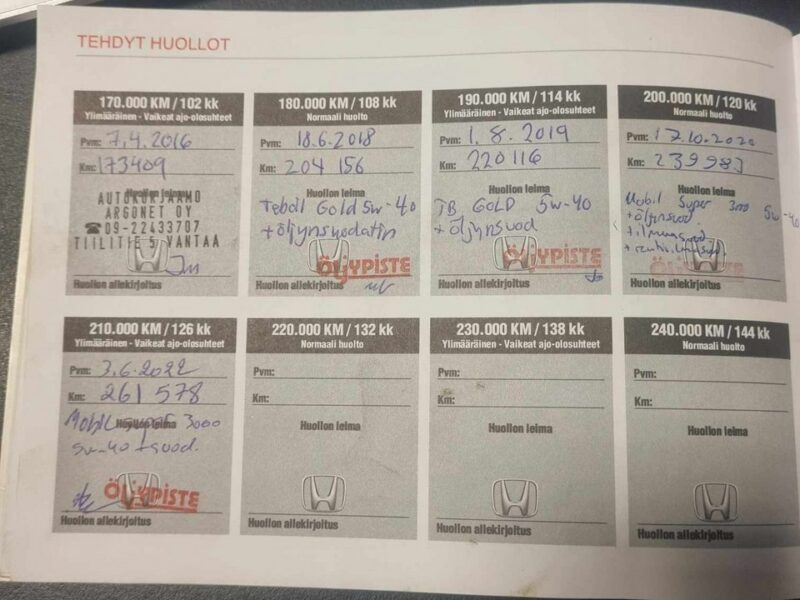 TEHDYT HUOLLOT
170.000 KM / 102 kk
Ylimääräinen - Vaikeat ajo-olosuhteet
Pvm: 7.4.2016
Km: 173409
Huollon leima
AUTOKORJAAMO
ARGONET OY
☎ 09-22433707
TIILITIE 5 VANTAA
Huollon allekirjoitus
180.000 KM / 108 kk
Normaali huolto
Pvm: 18.6.2018
Km: 204 156
Huollon leima
Teboil Gold 5w-40
+öljynsuodatin
ÖLJYPISTE
Huollon allekirjoitus
190.000 KM / 114 kk
Ylimääräinen - Vaikeat ajo-olosuhteet
Pvm: 1.8.2019
Km: 220116
Huollon leima
TB GOLD 5w-40
+ öljynsuod
ÖLJYPISTE
Huollon allekirjoitus
200.000 KM / 120 kk
Normaali huolto
Pvm: 17.10.2020
Km: 239983
Huollon leima
Mobil Super 3000 5w-40
+öljynsuod.
+ilmansuod
ÖLJYPISTE
Huollon allekirjoitus
210.000 KM / 126 kk
Ylimääräinen - Vaikeat ajo-olosuhteet
Pvm: 3.6.2022
Km: 261 578
Huollon leima
Mobil super 3000
5w-40 +suod.
ÖLJYPISTE
Huollon allekirjoitus
220.000 KM / 132 kk
Normaali huolto
Pvm:
Km:
Huollon leima
Huollon allekirjoitus
230.000 KM / 138 kk
Ylimääräinen - Vaikeat ajo-olosuhteet
Pvm:
Km:
Huollon leima
Huollon allekirjoitus
240.000 KM / 144 kk
Normaali huolto
Pvm:
Km:
Huollon leima
Huollon allekirjoitus